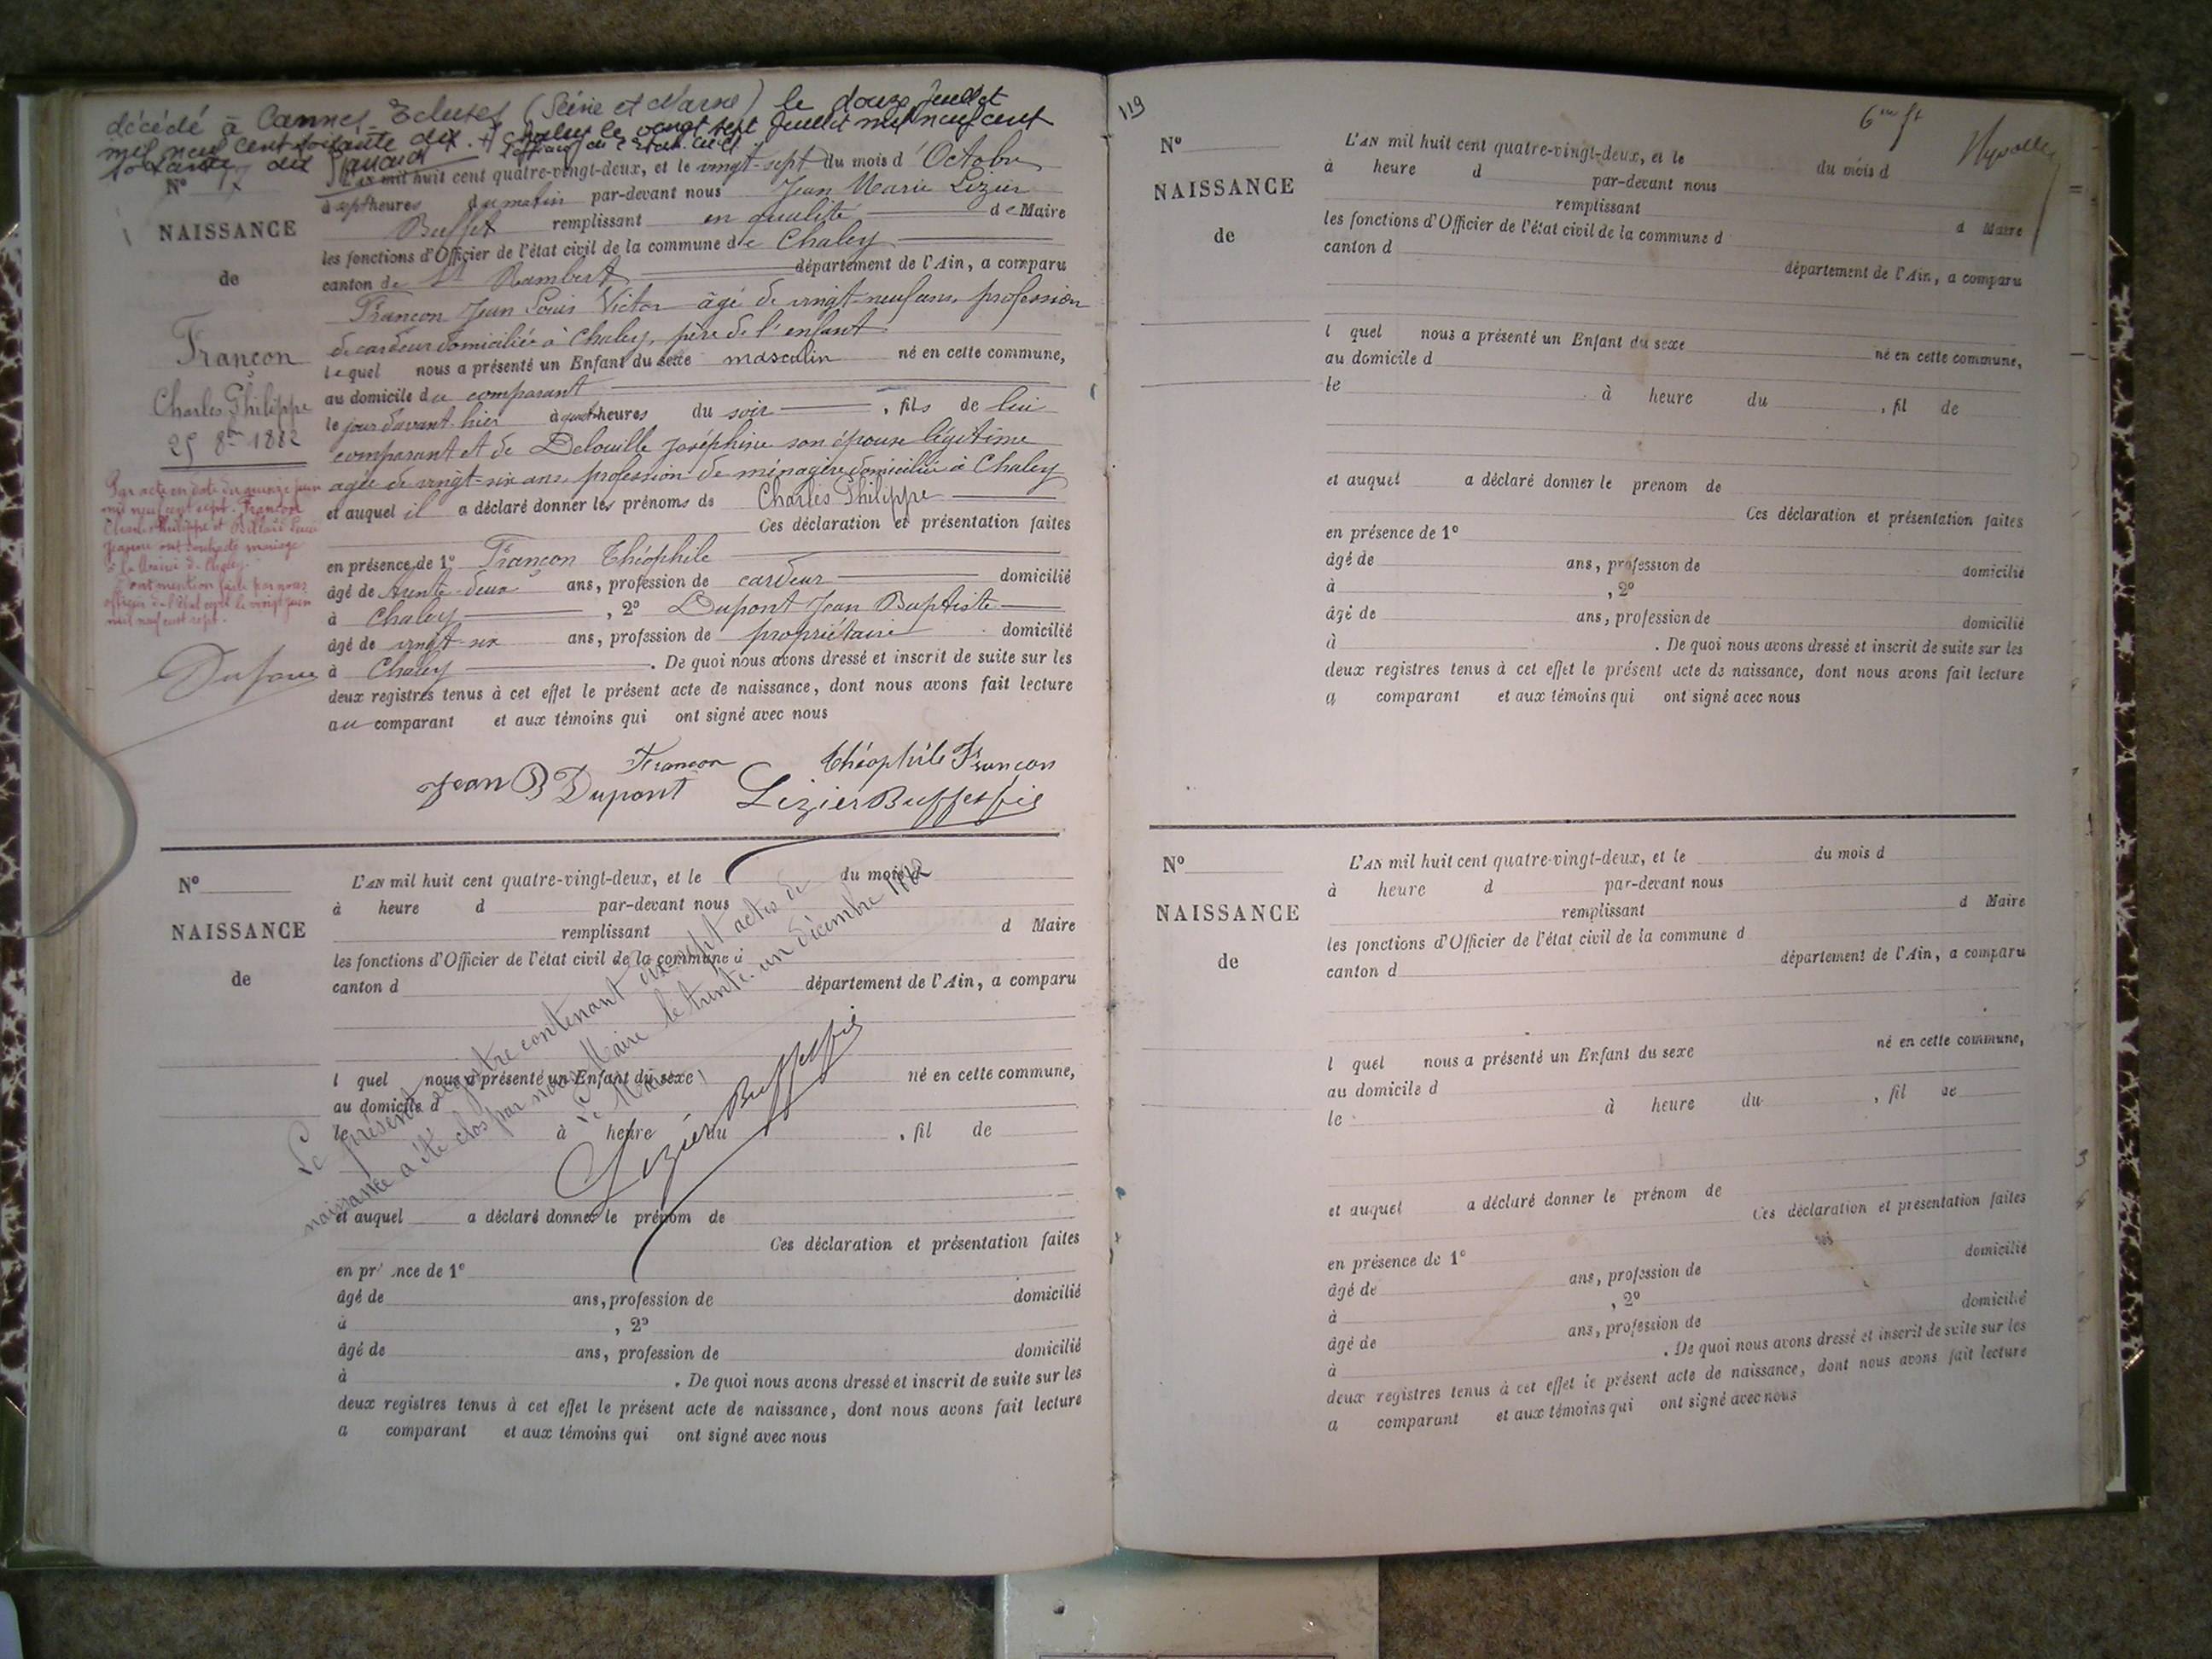 décédé à Cannes-Ecluses (Seine et Marne) le douze Juillet
mil neuf cent soixante dix. Chaley le vingt sept Juillet mil neuf cent
soixante dix
l'officier de l'état civil
N°
NAISSANCE
de
Françon
Charles Philippe
25 8bre 1882
Par acte en date du quinze juin
mil neuf cent sept. Françon
Charles Philippe et
Jeanne ont contracté mariage
à la Mairie de Chaley.
Dont mention faite par nous
officier de l'état civil le vingt juin
mil neuf cent sept.
Dufour
L'AN mil huit cent quatre-vingt-deux, et le vingt-sept du mois d'Octobre
à sept heures du matin par-devant nous Jean Marie Lizier
Buffet remplissant en qualité de Maire
les fonctions d'Officier de l'état civil de la commune de Chaley
canton de St Rambert département de l'Ain, a comparu
Françon Jean Louis Victor âgé de vingt-neuf ans, profession
de cardeur domicilié à Chaley, père de l'enfant
lequel nous a présenté un Enfant du sexe masculin né en cette commune,
au domicile du comparant
le jour d'avant hier à quatre heures du soir, fils de lui
comparant et de Delouille Joséphine son épouse légitime
agée de vingt-six ans, profession de ménagère domiciliée à Chaley
et auquel il a déclaré donner les prénoms de Charles Philippe
Ces déclaration et présentation faites
en présence de 1° Françon Théophile
âgé de trente-deux ans, profession de cardeur domicilié
à Chaley, 2° Dupont Jean Baptiste
âgé de vingt-six ans, profession de propriétaire domicilié
à Chaley. De quoi nous avons dressé et inscrit de suite sur les
deux registres tenus à cet effet le présent acte de naissance, dont nous avons fait lecture
au comparant et aux témoins qui ont signé avec nous
Françon Théophile Françon
Jean B Dupont Lizier Buffet fils
N°
NAISSANCE
de
L'AN mil huit cent quatre-vingt-deux, et le du mois d
à heure d par-devant nous
remplissant d Maire
les fonctions d'Officier de l'état civil de la commune d
canton d département de l'Ain, a comparu
l quel nous a présenté un Enfant du sexe né en cette commune,
au domicile d
le à heure du , fil de
et auquel a déclaré donner le prénom de
Ces déclaration et présentation faites
en présence de 1°
âgé de ans, profession de domicilié
à , 2°
âgé de ans, profession de domicilié
à . De quoi nous avons dressé et inscrit de suite sur les
deux registres tenus à cet effet le présent acte de naissance, dont nous avons fait lecture
a comparant et aux témoins qui ont signé avec nous
Le présent registre contenant dix sept actes de
naissance a été clos par nous Maire le trente-un décembre 1882
Le Maire,
Lizier Buffet fils
119
6me ft
N°
NAISSANCE
de
L'AN mil huit cent quatre-vingt-deux, et le du mois d
à heure d par-devant nous
remplissant d Maire
les fonctions d'Officier de l'état civil de la commune d
canton d département de l'Ain, a comparu
l quel nous a présenté un Enfant du sexe né en cette commune,
au domicile d
le à heure du , fil de
et auquel a déclaré donner le prenom de
Ces déclaration et présentation faites
en présence de 1°
âgé de ans, profession de domicilié
à , 2°
âgé de ans, profession de domicilié
à . De quoi nous avons dressé et inscrit de suite sur les
deux registres tenus à cet effet le présent acte de naissance, dont nous avons fait lecture
a comparant et aux témoins qui ont signé avec nous
N°
NAISSANCE
de
L'AN mil huit cent quatre-vingt-deux, et le du mois d
à heure d par-devant nous
remplissant d Maire
les fonctions d'Officier de l'état civil de la commune d
canton d département de l'Ain, a comparu
l quel nous a présenté un Enfant du sexe né en cette commune,
au domicile d
le à heure du , fil de
et auquel a déclaré donner le prénom de
Ces déclaration et présentation faites
en présence de 1° domicilié
âgé de ans, profession de
à , 2° domicilié
âgé de ans, profession de
à . De quoi nous avons dressé et inscrit de suite sur les
deux registres tenus à cet effet le présent acte de naissance, dont nous avons fait lecture
a comparant et aux témoins qui ont signé avec nous